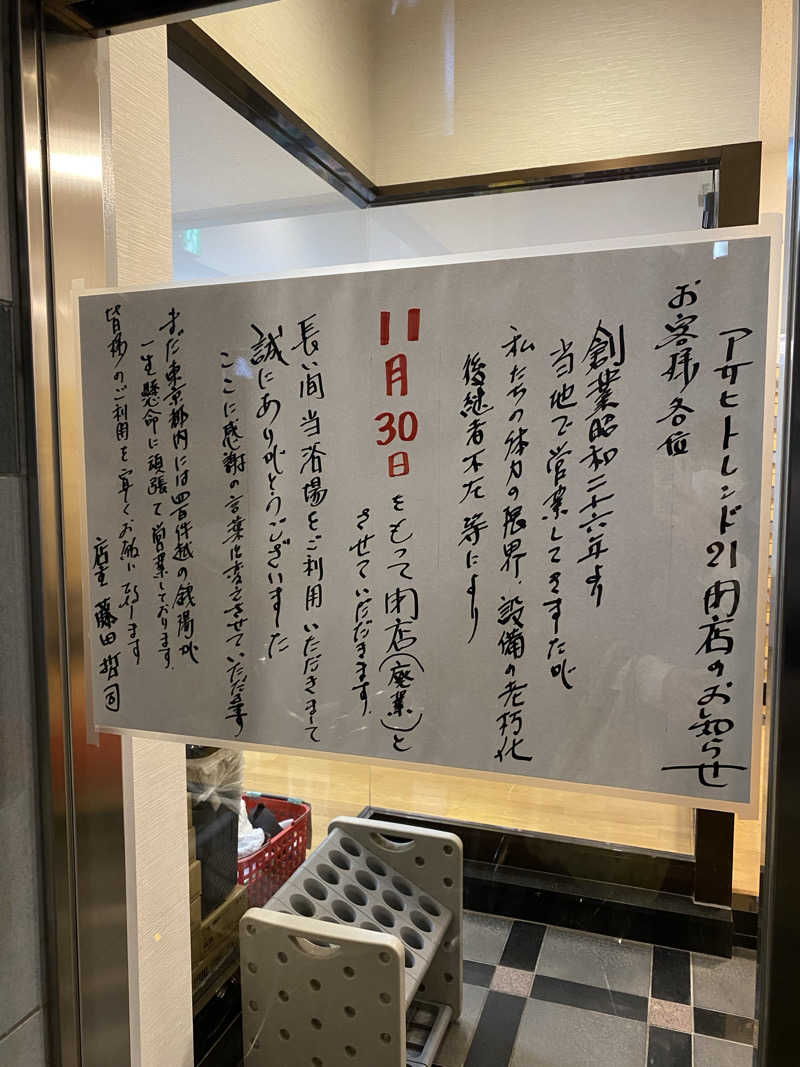 アサヒトレンド21閉店のお知らせ
お客様各位
創業昭和二十六年より
当地で営業してきましたが
私たちの体力の限界、設備の老朽化
後継者不在 等により
11月30日をもって閉店(廃業)と
させていただきます。
長い間当浴場をご利用いただきまして
誠にありがとうございました
ここに感謝の言葉に変えさせていただきます
まだ東京都内には四百件越の銭湯が
一生懸命に頑張て営業しております。
皆様のご利用を宜くお願い致します
店主 藤田哲司